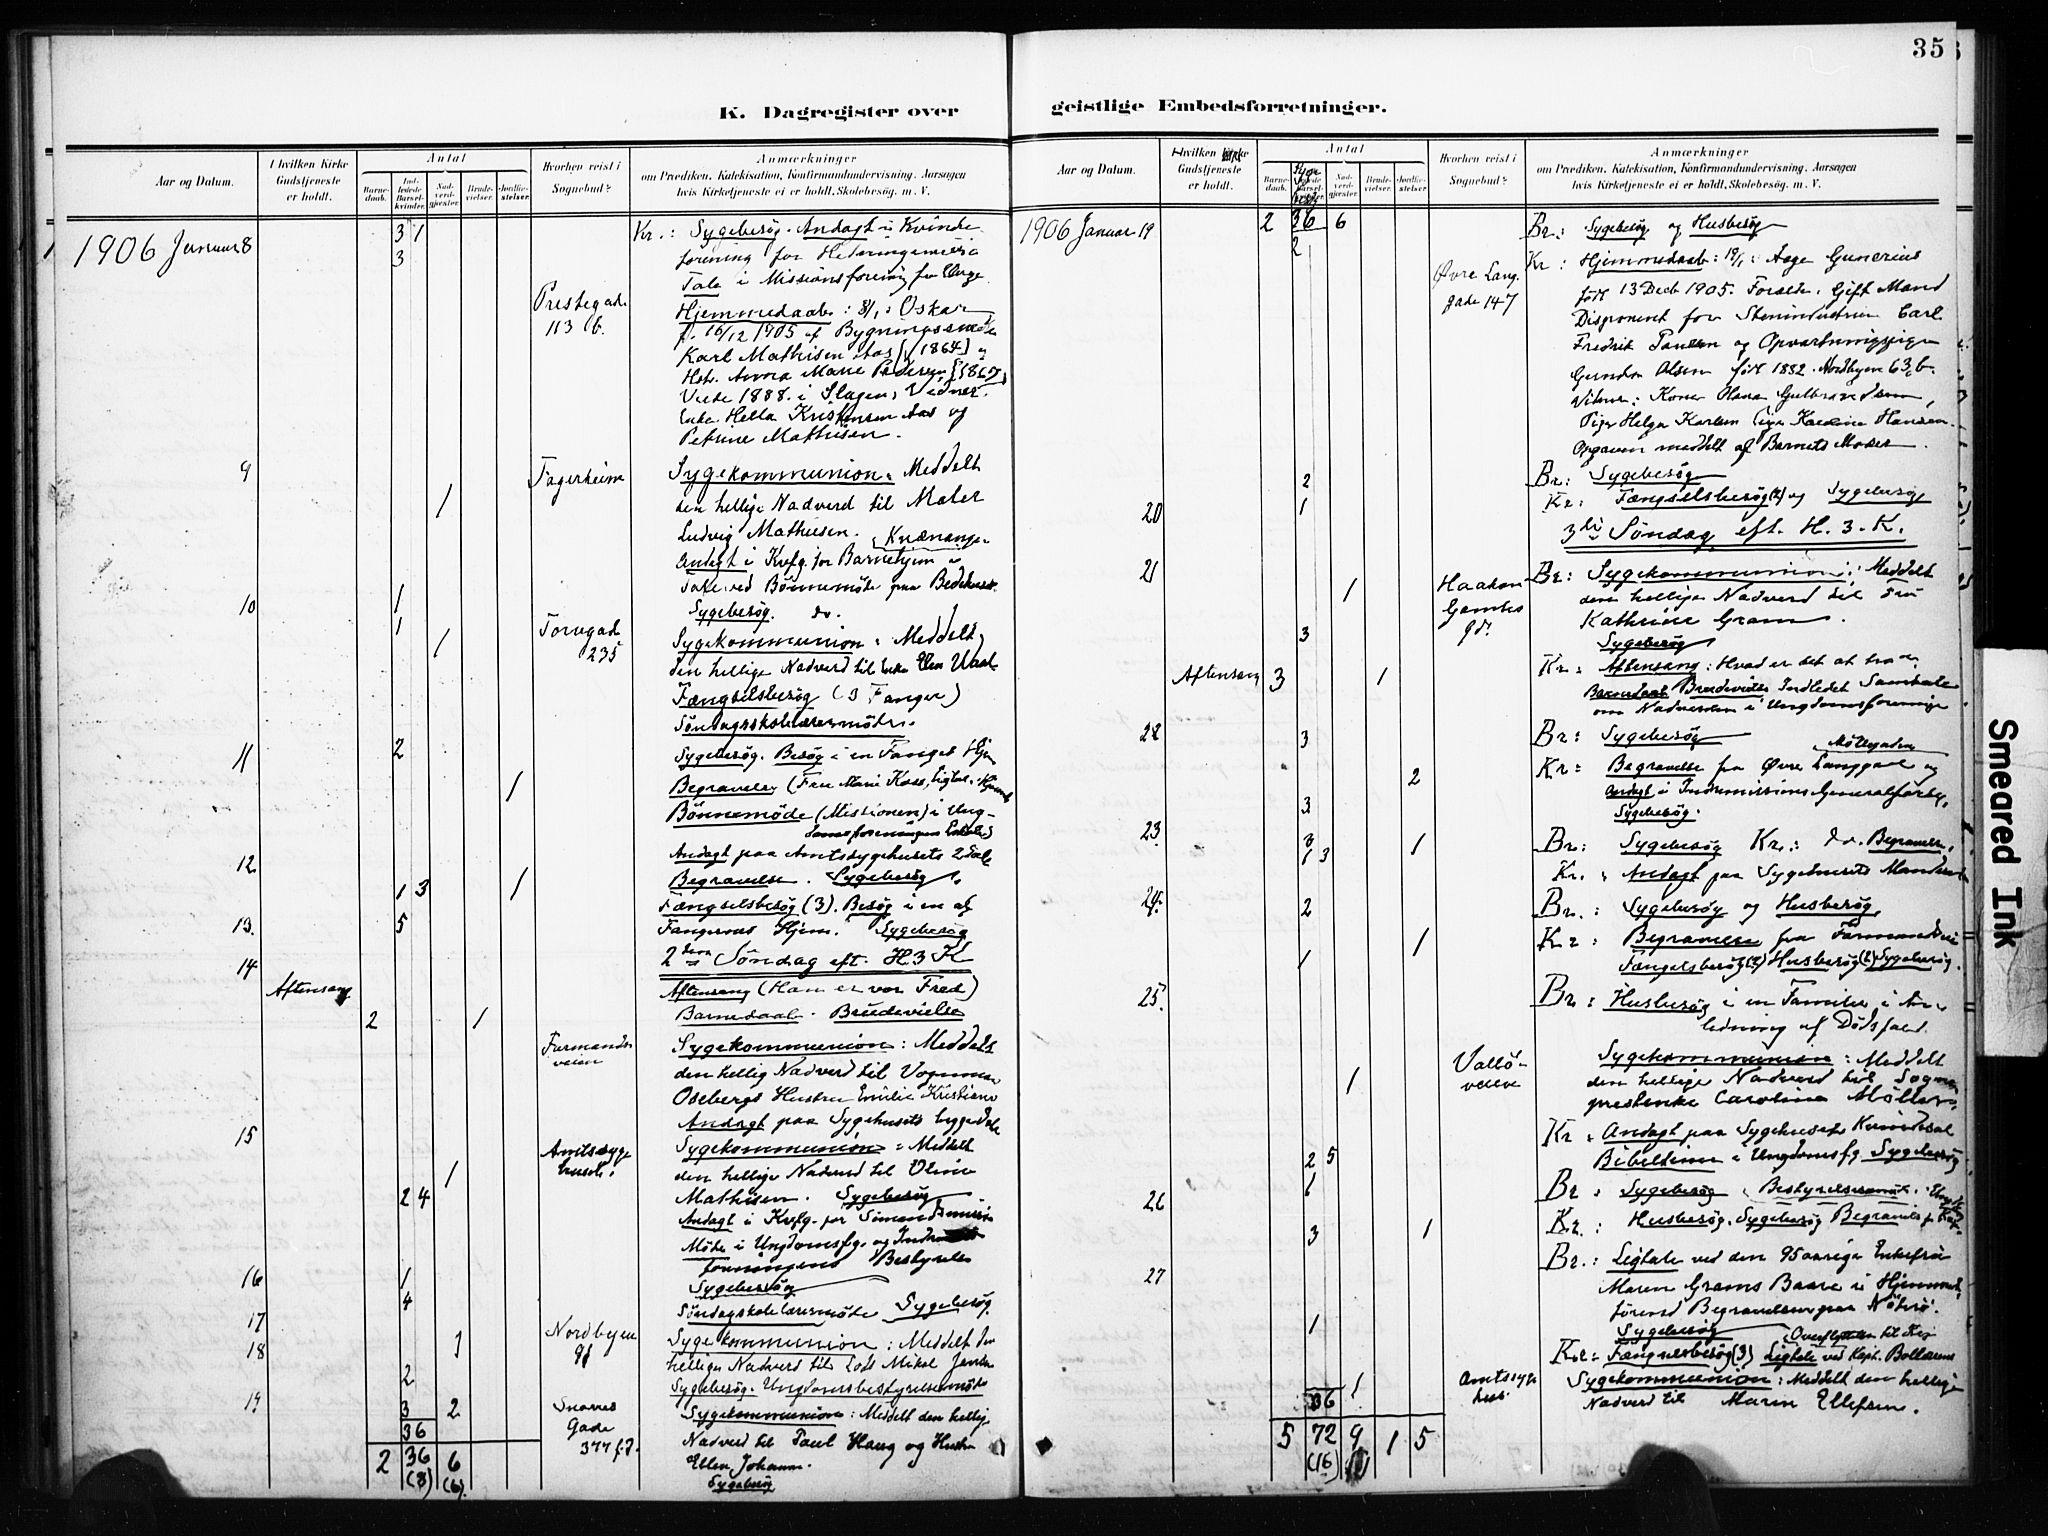 35
K. Dagregister over
geistlige Embedsforretninger.
Aar og Datum.
I hvilken Kirke Gudstjeneste er holdt.
Antal
Barne-daab.
Ind-ledede Barsel-kvinder.
Nad-verd-gjæster.
Brude-vielser.
Jordfæ-stelser.
Hvorhen reist i Sognebud?
Anmærkninger
om Prædiken, Katekisation, Konfirmandundervisning, Aarsagen
hvis Kirketjeneste ei er holdt, Skolebesøg, m. V.
1906 Januar 8
3 1
3
Kr.: Sygebesøg. Andagt i Kvinde
forening for Hedningemissio
Tale i Missionsforening for Unge
Prestegad.
113 b.
Hjemmedaab: 8/1: Oskar
f. 16/12 1905 af Bygningssnedk
Karl Mathisen Aas [f 1864] og
Hstr. Anna Marie Pedersen [1867]
Viede 1888 i Slagen. Vidner:
Enke Hella Kristensen Aas og
Petrine Mathisen.
9
1
Fagerheim
Sygekommunion: Meddelt
den hellige Nadverd til Maler
Ludvig Mathisen.
Andagt i Kvfg. for Barnehjem
Tale ved Bönnemöde paa Bedehuset
10
1
1
Sygebesøg. do.
1
Torvgad.
235
Sygekommunion: Meddelt
den hellige Nadverd til Enke Elen
Fængselsbesøg (3 Fanger)
Söndagsskolelærermöde.
11
2
Sygebesøg. Besøg i en Fanges Hjem
1
Begravelse (Fru Marie
Bönnemöde (Missionen) i Ung-
domsforeningens
Andagt paa Amtssygehusets 2 Sale
12
1 3
1
Begravelse. Sygebesøg.
Fængselsbesøg (3). Besøg i en af
13.
5
Fangernes Hjem. Sygebesøg
2den Söndag eft. H 3 K
14
Aftensang
Aftensang (Han er vor Fred)
2
1
Barnedaab. Brudevielse
Farmands
veien
Sygekommunion: Meddelt
den hellig Nadverd til Vognman
Osebergs Hustru Emilie Kristiane
Andagt paa Sygehusets begge Sale
15
1
Amtssyge
huset.
Sygekommunion: Meddelt
den hellige Nadverd til Oline
2 4
Mathisen. Sygebesøg
Andagt i Kvfg. for Sömandsmission
Møde i Ungdomsfg. og
foreningens Bestyrelse
16
1
Sygebesøg
4
Söndagskolelærermöde Sygebesøg.
17
18
1
Nordbyen
91
Sygekommunion: Meddelt den
hellige Nadverd til Lods Mikal Jensen
2
Sygebesøg. Ungdomsbestyrelsesmöde
19
3
2
Snorres
Gade
377
Sygekommunion: Meddelt den hellig
Nadverd til Paul Haug og Hustru
Ellen Johanne.
Sygebesøg
36
2 36 6
(8) (6).
Aar og Datum.
I hvilken Kirke Gudstjeneste er holdt.
Antal
Barne-daab.
Syge besøg
Nad-verd-gjæster.
Brude-vielser.
Jordfæ-stelser.
Hvorhen reist i Sognebud?
Anmærkninger
om Prædiken, Katekisation, Konfirmandundervisning, Aarsagen
hvis Kirketjeneste ei er holdt, Skolebesøg, m. V.
1906 Januar 19
2 36 6
2
Br.: Sygebesøg og Husbesøg
Øvre Lang.
gade 147
Kr: Hjemmedaab: 19/1: Aage Gunerius
født 13 Decb 1905. Forældre: Gift Mand
Disponent for Stenindustrien Carl
Fredrik Paulsen og Opvartningspige
Gunda Olsen født 1882. Nordbyen 63 b.
Vidner: Kone Olava Gulbrandsen,
Pige Helga Karlsen Pige Karoline Hansen.
Opgaven meddelt af Barnets Moder
2
Br: Sygebesøg
20
1
Kr: Fængselsbesøg (2) og Sygebesøg
3die Søndag eft. H. 3. K.
21
1
Haakon
Gamles
gd.
Br: Sygekommunion: Meddelt
den hellige Nadverd til Fru
Kathrine Gram.
3
Sygebesøg
Aftensang 3
1
Kr: Aftensang: Hvad er det at tro
Barnedaab Brudevielse Indledet Samtale
om Nadverden i Ungdomsforening
22
3
Br: Sygebesøg
Möllegaden
2
Kr: Begravelse fra Øvre Langgade og
Andagt i Indremissions Generalforsl.
3
Sygebesøg.
23
3
1
Br: Sygebesøg Kr.: do. Begravelse.
1 3
Kr: Andagt paa Sygehusets Mandssal
24
2
Br.: Sygebesøg og Husbesøg
1
Kr: Begravelse fra Farmandsvei
1
Fængselsbesøg (2) Husbesøg (2) Sygebesøg.
25.
Br: Husbesøg i en Familie i An-
ledning af Dødsfald.
1
Vallö-
veien
Sygekommunion: Meddelt
den hellige Nadverd til Sogne
prestenke Carolina Möller.
Kr: Andagt paa Sygehusets Kvindesal
2 5
Bibeltime i Ungdomsfg. Sygebesøg
26
1
Br: Sygebesøg Bestyrelsesmøde.
3
1
Kr.: Husbesøg. Sygebesøg Begravelse
27
Br.: Ligtale ved den 95 aarige Enkefru
Maren Grams Baare i Hjemmet,
förend Begravelsen paa Nöterö.
1
Sygebesøg
Kr: Fængselsbesøg (3) Ligtale ved Kapt. Bollærens
1
Amtssyge
hus.
Sygekommunion: Meddelt den hellige
Nadverd til Maren Ellefsen.
36
5 72 9 1 5
(16)
Smeared Ink